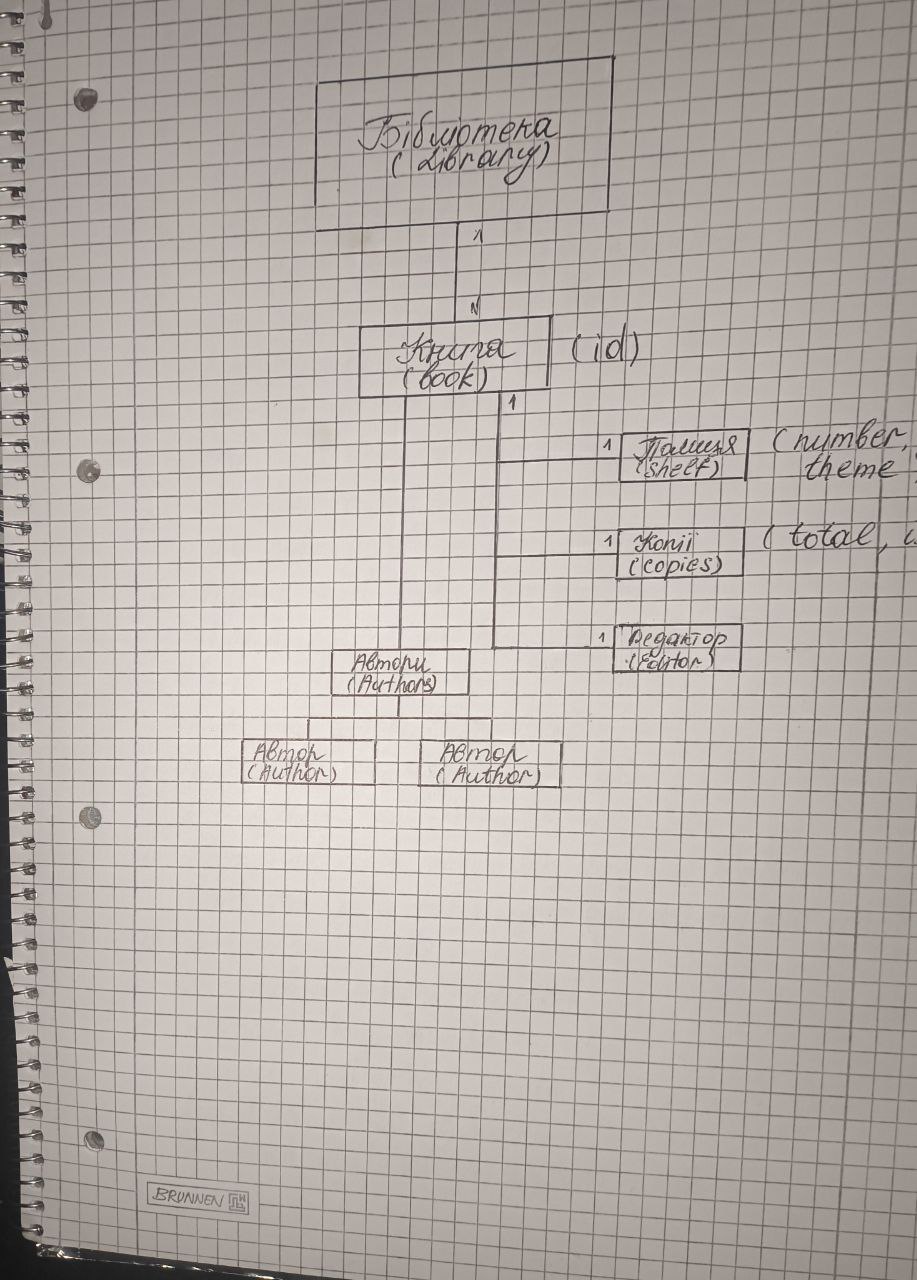 Бібліотека
(Library)
1
N
Книга
(book)
(id)
1
1
Полиця
(shelf)
(number,
theme
1
Копії
(copies)
(total,
1
Редактор
(Editor)
Автори
(Authors)
Автор
(Author)
Автор
(Author)
BRUNNEN